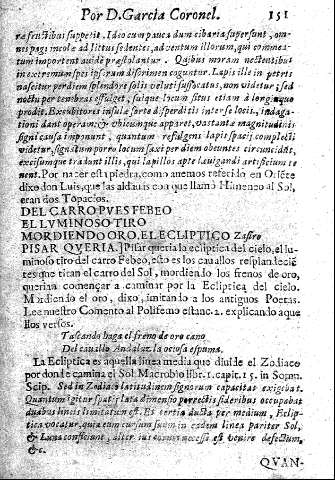 Por D. Garcia Coronel. 151
ræ fructibus suppetit. Ideo cum pauca dum cibaria supersunt, om-
nes pagi incolæ ad littus sedentes, aduentum illorum, qui commea-
tum important auidè præstolantur. Quibus moram nectentibus
in extremum spei ipsarum discrimen coguntur. Lapis ille in petris
nascitur per diem splendore solis veluti suffocatus, non videtur; sed
noctu per tenebras effulget, suique locum situs etiam à longinquo
prodit. Excubitores insulæ sorte dispersi diis inter se locis, indaga-
tioni dant operam; & vbicumque apparet, vastantæ magnitudinis
signi causa imponunt, quantum refulgens lapis spatij complecti
videtur, signatum porro locum saxi per diem obeuntes circuncidũt,
excisumque tradunt illis, qui lapillos apte læuigandi artificium te
nent. Por nacer esta piedra, como auemos referido en Oriẽte
dixo don Luis, que las aldauas con que llamò Himeneo al Sol,
eran dos Topacios.
DEL CARRO PVES FEBEO
EL LVMINOSO TIRO
MORDIENDO ORO, EL ECLIPTICO Zafiro
PISAR QVERIA.] Pisar queria la ecliptica del cielo, el lu-
minoso tiro del carro Febeo, esto es los cauallos resplandeciẽ
tes que titan el carro del Sol, mordiendo los frenos de oro,
querian començar a caminar por la Ecliptica del cielo.
Mordiendo el oro, dixo, imitando a los antiguos Poetas.
Lee nuestro Comento al Polifemo estanc. 2. explicando aque
llos versos.
Tascando haga el freno de oro cano
Del cauallo Andaluz la ociosa espuma.
La Ecliptica es aquella linea media que diuide el Zodiaco
por donde camina el Sol: Macrobio libr. 1. capit. 15. in Somn.
Scip. Sed in Zodiaco latitudinem signorum capacitas exigebat.
Quantum igitur spatij lata dimensio porrectis sideribus occupabat
duabus lineis limitatum est. Et tertia ducta per medium, Eclip-
tica vocatur, quia cum cursum suum in eadem linea pariter Sol,
& Luna conficiunt, alterius eorum necesse est venire defectum,
&c.
QVAN-